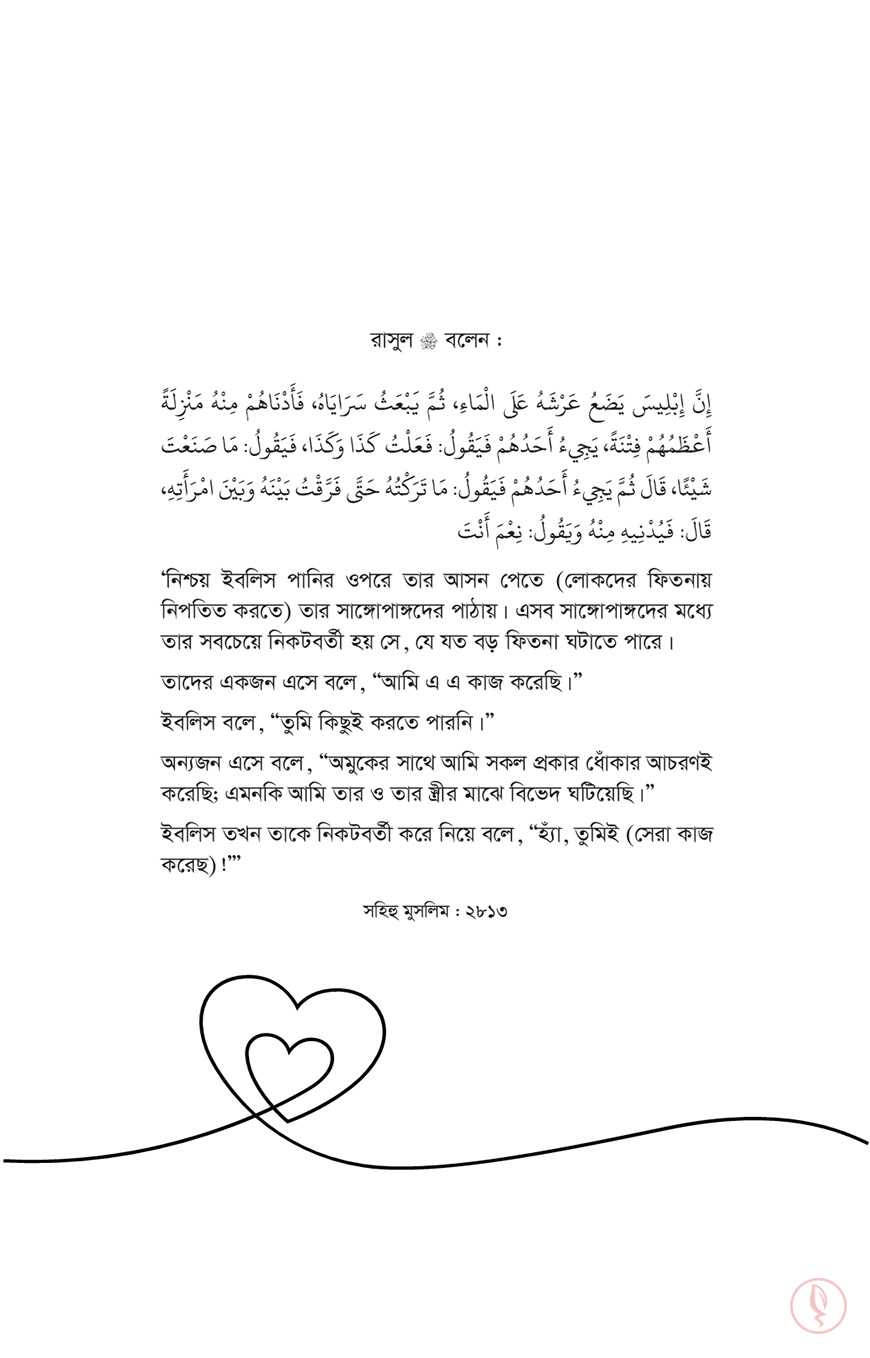 রাসুল ﷺ বলেন :
إِنَّ إِبْلِيسَ يَضَعُ عَرْشَهُ عَلَى الْمَاءِ، ثُمَّ يَبْعَثُ سَرَايَاهُ، فَأَدْنَاهُمْ مِنْهُ مَنْزِلَةً
أَعْظَمُهُمْ فِتْنَةً، يَجِيءُ أَحَدُهُمْ فَيَقُولُ: فَعَلْتُ كَذَا وَكَذَا، فَيَقُولُ: مَا صَنَعْتَ
شَيْئًا، قَالَ ثُمَّ يَجِيءُ أَحَدُهُمْ فَيَقُولُ: مَا تَرَكْتُهُ حَتَّى فَرَّقْتُ بَيْنَهُ وَبَيْنَ امْرَأَتِهِ،
قَالَ: فَيُدْنِيهِ مِنْهُ وَيَقُولُ: نِعْمَ أَنْتَ
‘নিশ্চয় ইবলিস পানির ওপরে তার আসন পেতে (লোকদের ফিতনায়
নিপতিত করতে) তার সাঙ্গোপাঙ্গদের পাঠায়। এসব সাঙ্গোপাঙ্গদের মধ্যে
তার সবচেয়ে নিকটবর্তী হয় সে, যে যত বড় ফিতনা ঘটাতে পারে।
তাদের একজন এসে বলে, “আমি এ এ কাজ করেছি।”
ইবলিস বলে, “তুমি কিছুই করতে পারনি।”
অন্যজন এসে বলে, “অমুকের সাথে আমি সকল প্রকার ধোঁকার আচরণই
করেছি; এমনকি আমি তার ও তার স্ত্রীর মাঝে বিভেদ ঘটিয়েছি।”
ইবলিস তখন তাকে নিকটবর্তী করে নিয়ে বলে, “হ্যাঁ, তুমিই (সেরা কাজ
করেছ)!”’
সহিহু মুসলিম : ২৮১৩